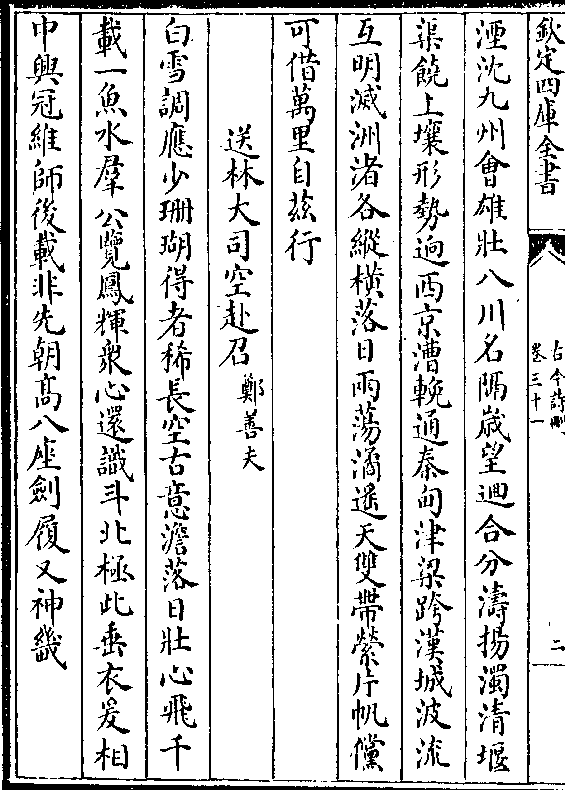 欽定四庫全書
古今詩刪
卷三十一
二
湮沈九州會雄壯八川名隔歳望迴合分濤揚濁清堰
渠饒上壤形勢逈西京漕輓通秦甸津梁跨漢城波流
互明滅洲渚各縱横落日雨蕩潏遥天雙帶縈片帆儻
可借萬里自兹行
送林大司空赴召 鄭善夫
白雪調應少珊瑚得者稀長空古意澹落日壯心飛千
載一魚水羣公覽鳳輝衆心還識斗北極此垂衣爰相
中興冠維師後載非先朝髙八座劍履又神畿